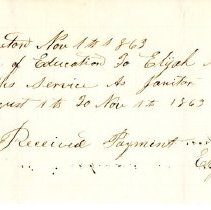 Nov 1th 1863
of Education To Elijah
Service As Janitor
1th To Nov 1th 1863
Received Payment